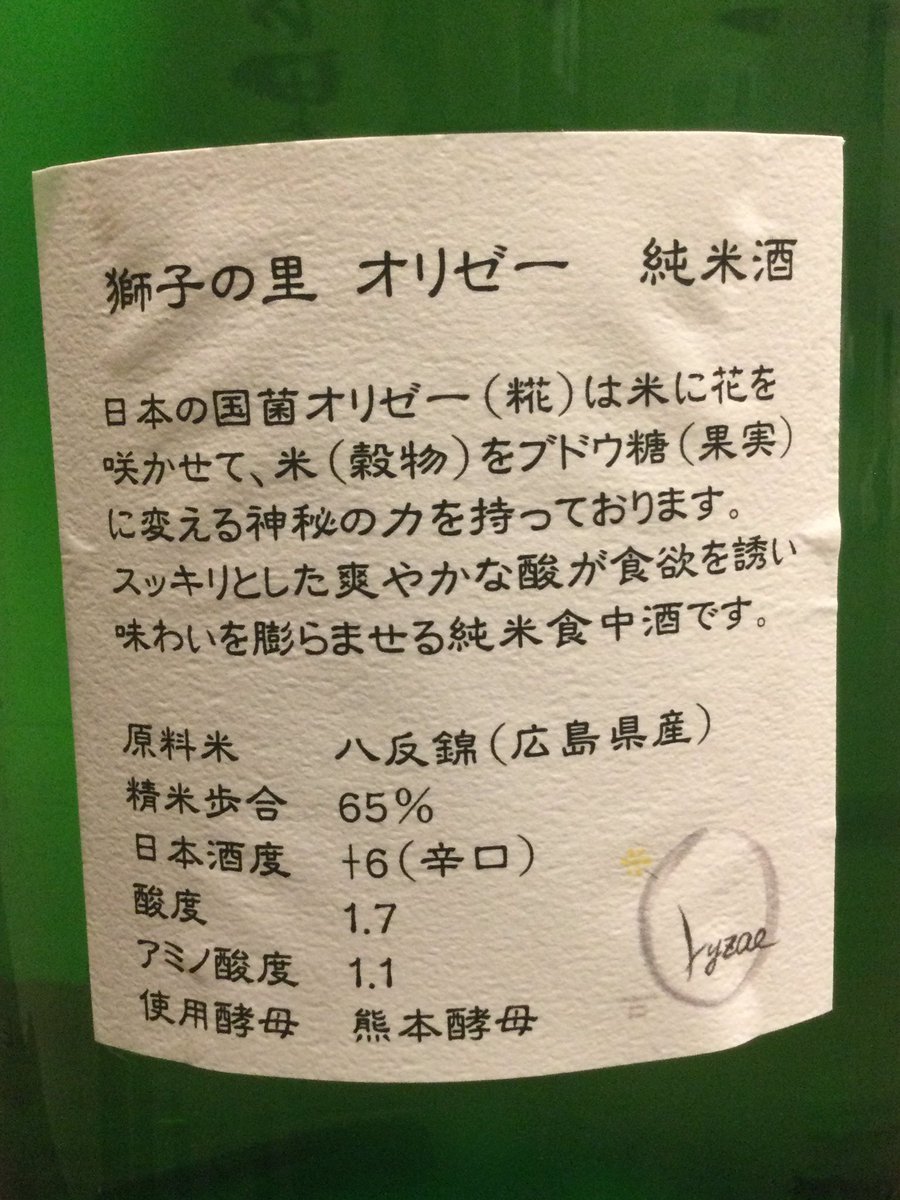 獅子の里 オリゼー 純米酒
日本の国菌オリゼー(糀)は米に花を
咲かせて、米(穀物)をブドウ糖(果実)
に変える神秘の力を持っております。
スッキリとした爽やかな酸が食欲を誘い
味わいを膨らませる純米食中酒です。
原料米 八反錦(広島県産)
精米歩合 65%
日本酒度 +6(辛口)
酸度 1.7
アミノ酸度 1.1
使用酵母 熊本酵母
ryzae